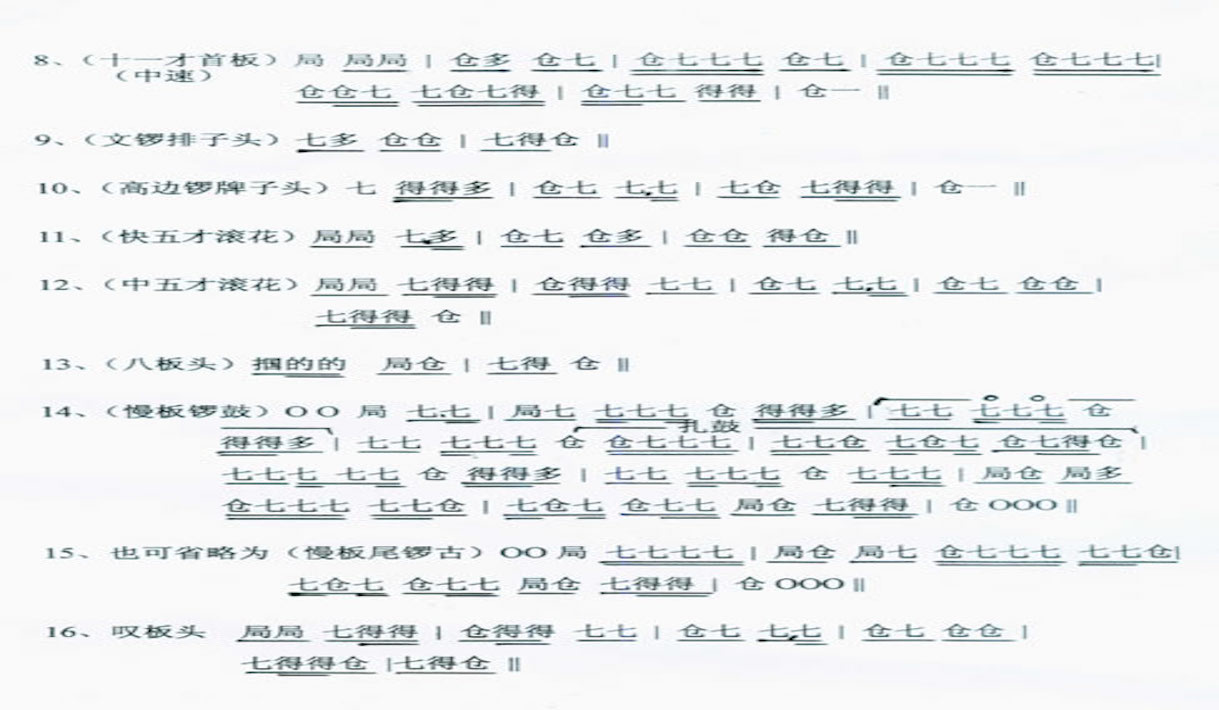 8、（十一才首板）局 局局 | 仓多 仓七 | 仓七七七 仓七 | 仓七七七 仓七七七|
（中速）
仓仓七 七仓七得 | 仓七七 得得 | 仓一 ‖
9、（文锣排子头）七多 仓仓 | 七得仓 ‖
10、（高边锣牌子头）七 得得多 | 仓七 七.七 | 七仓 七得得 | 仓一 ‖
11、（快五才滚花）局局 七.多 | 仓七 仓多 | 仓仓 得仓 ‖
12、（中五才滚花）局局 七得得 | 仓得得 七七 | 仓七 七.七 | 仓七 仓仓 |
七得得 仓 ‖
13、（八板头）掴的的 局仓 | 七得 仓 ‖
14、（慢板锣鼓）O O 局 七.七 | 局七 七七七 仓 得得多 | 七七 七七七 仓
扎鼓
得得多 | 七七 七七七 仓 仓七七七 | 七七仓 七仓七 仓七得仓 |
七七七 七七 仓 得得多 | 七七 七七七 仓 七七七 | 局仓 局多
仓七七七 七七仓 | 七仓七 仓七七 局仓 七得得 | 仓 OOO ‖
15、也可省略为（慢板尾锣古）OO 局 七七七七 | 局仓 局七 仓七七七 七七仓|
七仓七 仓七七 局仓 七得得 | 仓 OOO ‖
16、叹板头 局局 七得得 | 仓得得 七七 | 仓七 七.七 | 仓七 仓仓 |
七得得仓 |七得仓 ‖